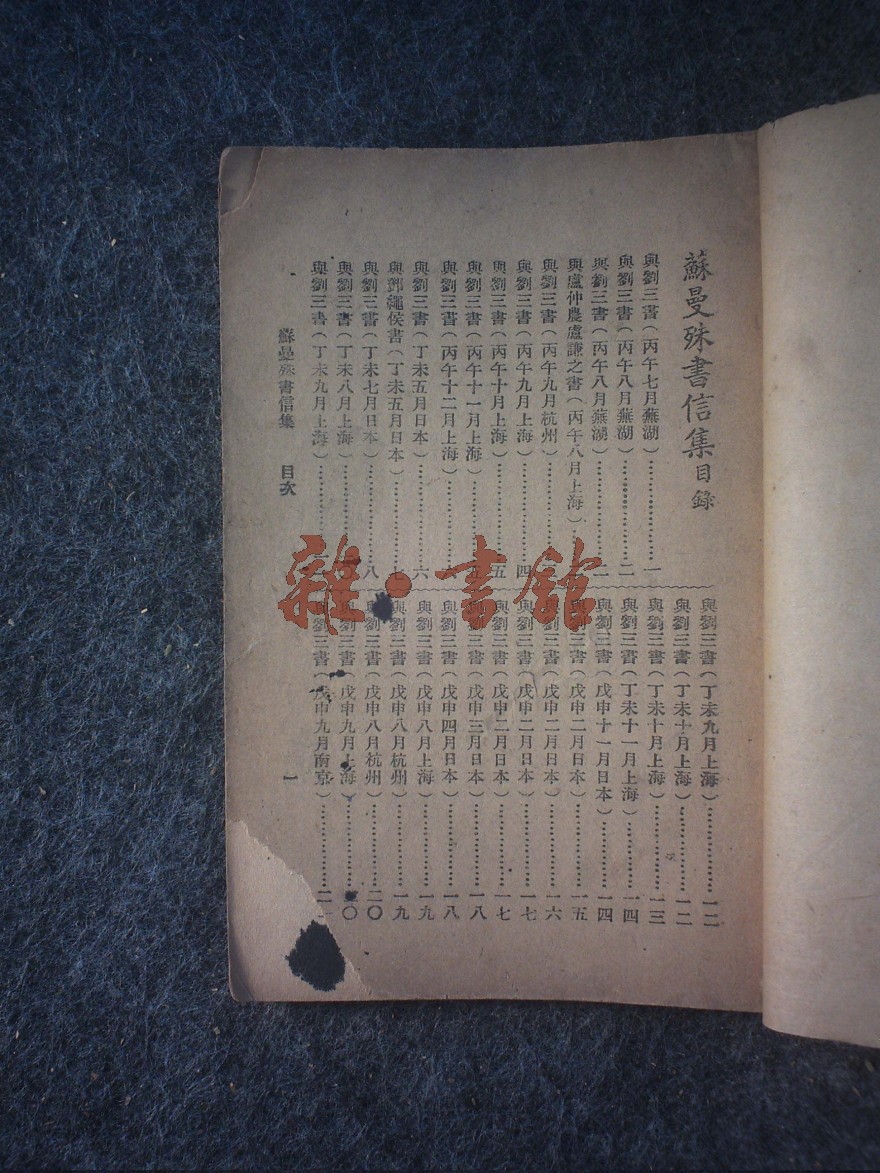 蘇曼殊書信集目錄
與劉三書(丙午七月蕪湖)…………一
與劉三書(丙午八月蕪湖)…………二
與劉三書(丙午八月蕪湖)…………二
與盧仲農盧謙之書(丙午八月上海)…
與劉三書(丙午九月杭州)…………
與劉三書(丙午九月上海)…………四
與劉三書(丙午十月上海)…………五
與劉三書(丙午十一月上海)…………五
與劉三書(丙午十二月上海)…………
與劉三書(丁未五月日本)…………六
與鄧繩侯書(丁未五月日本)…………七
與劉三書(丁未七月日本)…………八
與劉三書(丁未八月上海)…………
與劉三書(丁未九月上海)…………
與劉三書(丁未九月上海)…………一二
與劉三書(丁未十月上海)…………一二
與劉三書(丁未十月上海)…………一三
與劉三書(丁未十一月上海)…………一四
與劉三書(戊申十一月日本)…………一四
與劉三書(戊申二月日本)…………一五
與劉三書(戊申二月日本)…………一六
與劉三書(戊申二月日本)…………一七
與劉三書(戊申二月日本)…………一七
與劉三書(戊申三月日本)…………一八
與劉三書(戊申四月日本)…………一八
與劉三書(戊申八月上海)…………一九
與劉三書(戊申八月杭州)…………一九
與劉三書(戊申八月杭州)…………二〇
與劉三書(戊申九月上海)…………二〇
與劉三書(戊申九月南京)…………二
蘇曼殊書信集 目次 一
雜·書館